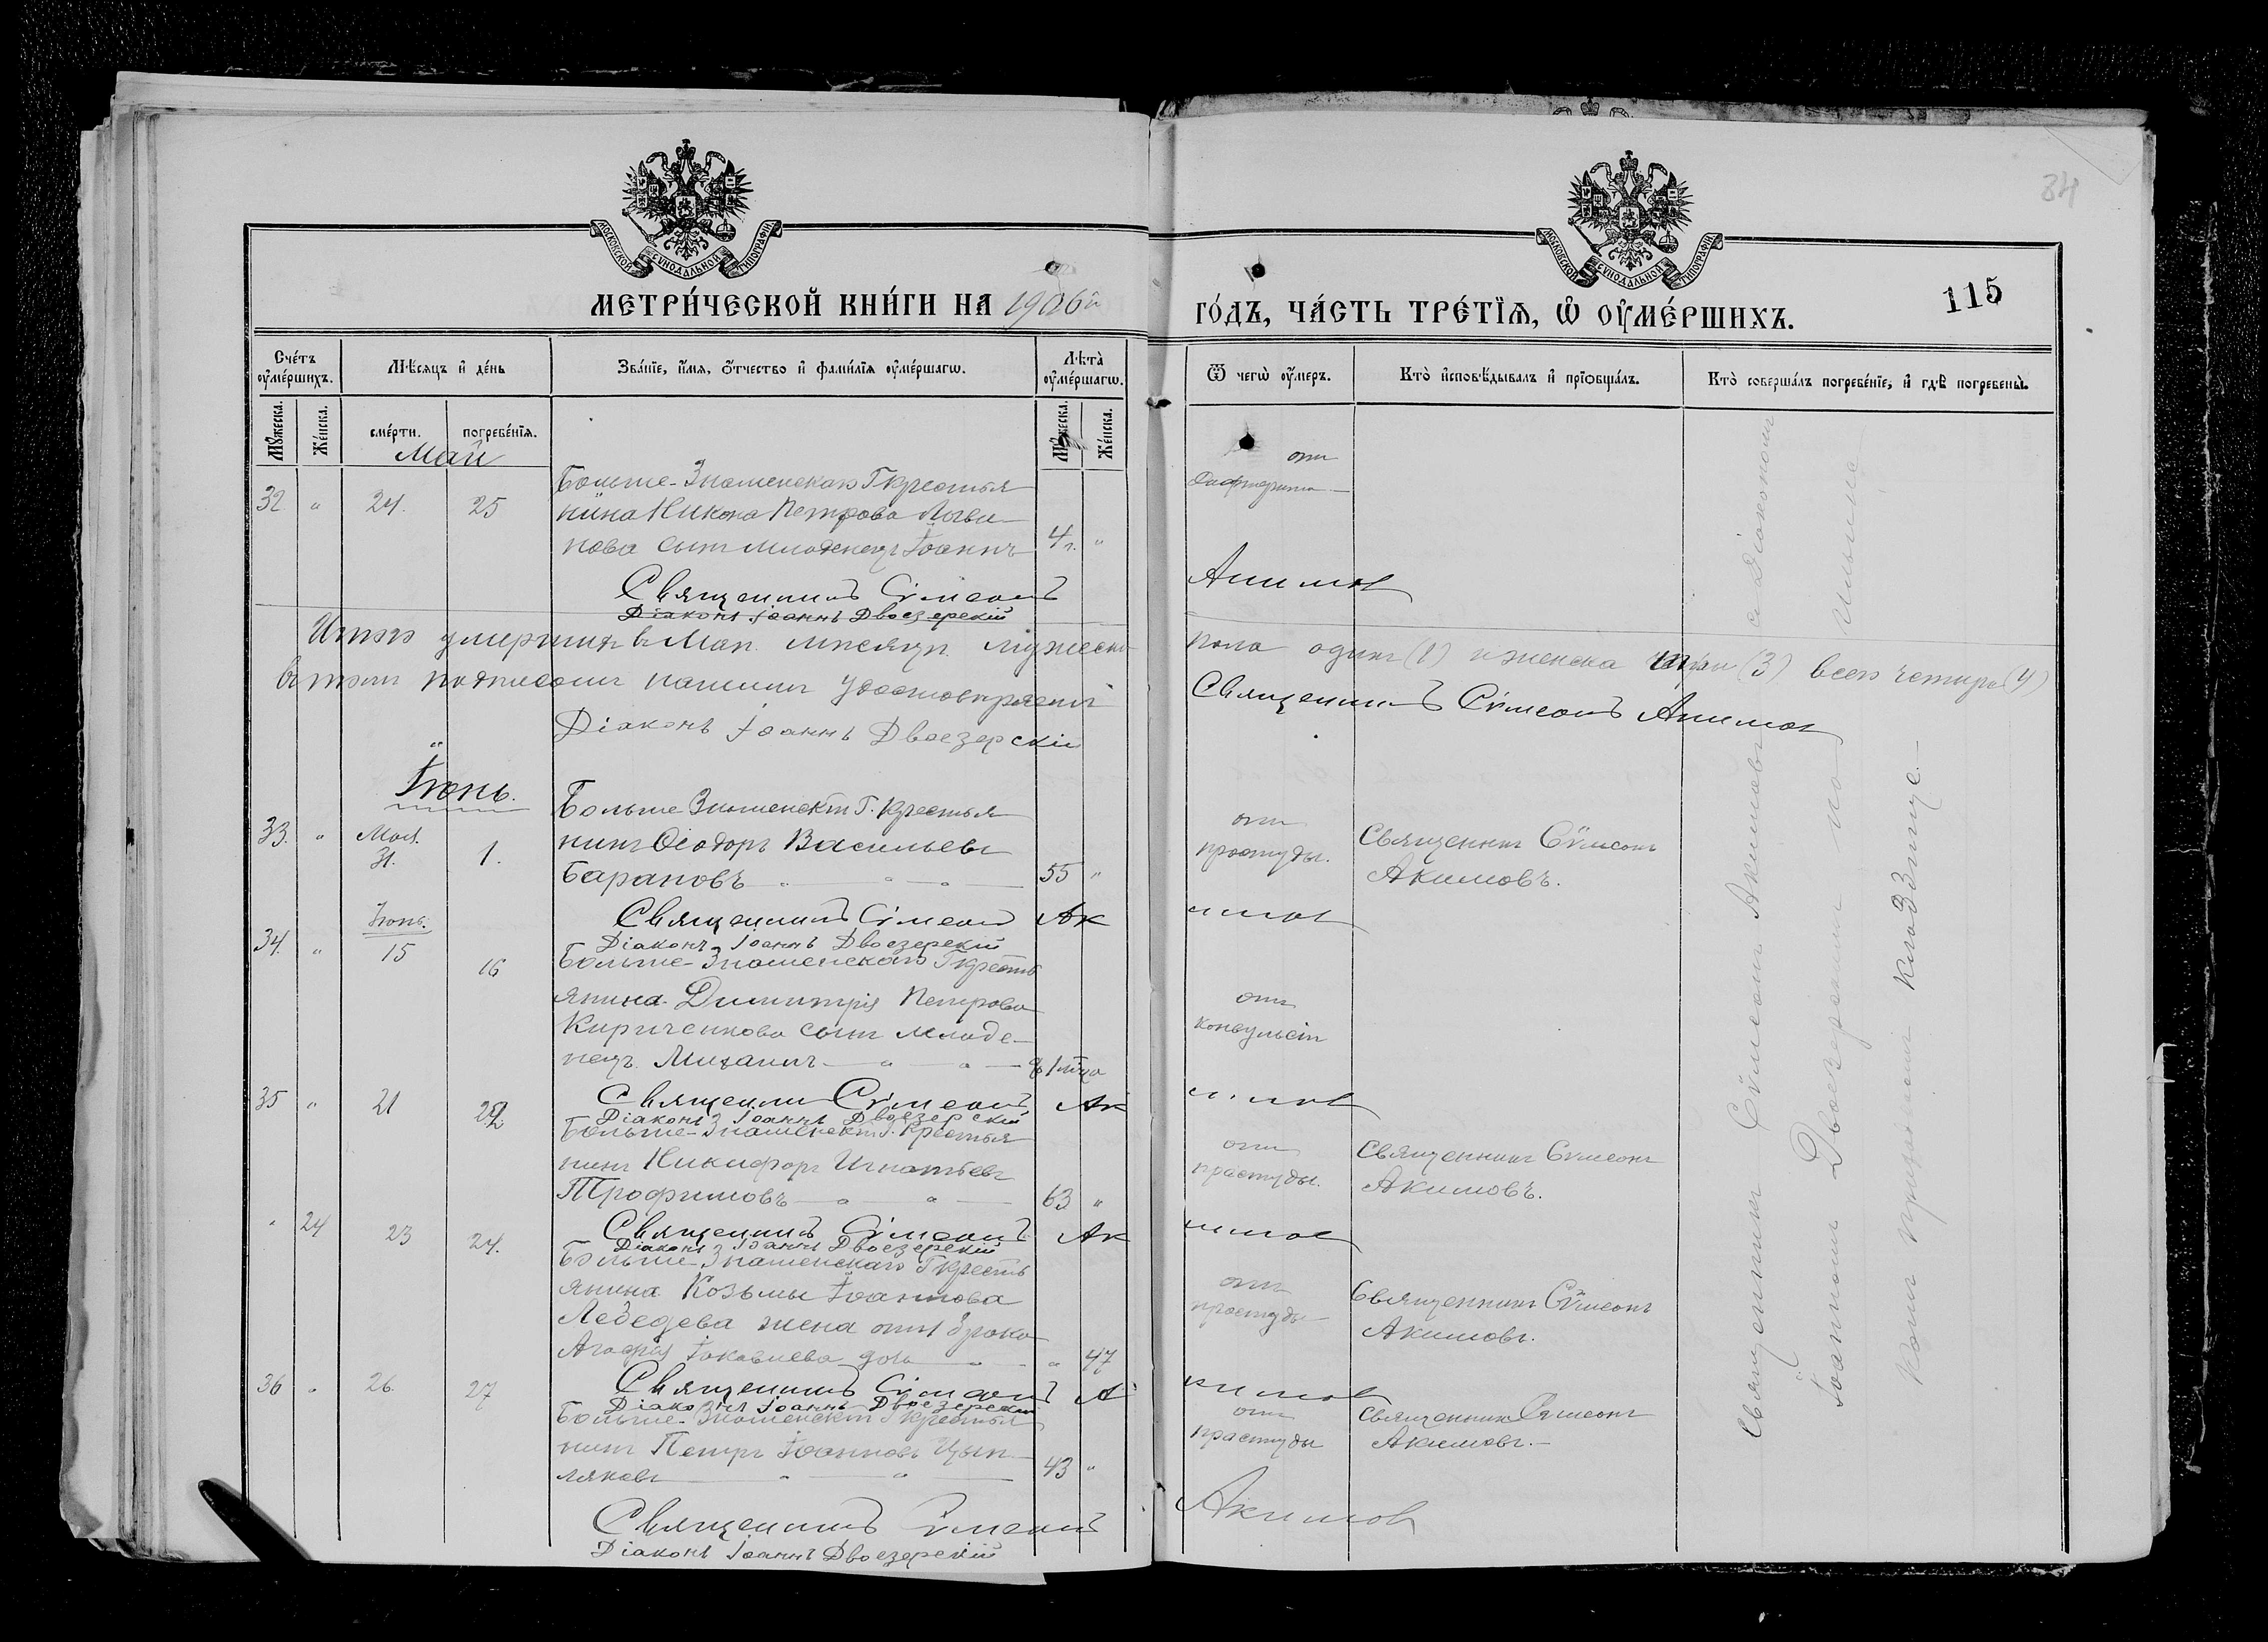 МОСКОВСКОЙ СѴНОДАЛЬНОЙ ТИПОГРАФІИ
МОСКОВСКОЙ СѴНОДАЛЬНОЙ ТИПОГРАФІИ
34
115
МЕТРИ́ЧЕСКОЙ КНИ́ГИ НА 1906й
ГО́ДЪ, ЧА́СТЬ ТРЕ́ТЇѦ, Ѽ ОУ҆МЕ́РШИХЪ.
Сче́тъ оу҆ме́ршихъ.
Мѣ́сяцъ и҆ де́нь
Зва́нїе, и҆́мя, ѻ҆́тчество и҆ фами́лїя оу҆ме́ршагѡ.
Лѣта̀ оу҆ме́ршагѡ.
Ѿ чегѡ̀ оу҆́меръ.
Кто̀ и҆сповѣ́дывалъ и҆ прїѡбща́лъ.
Кто̀ соверша́лъ погребе́нїе, и҆ гдѣ̀ погребены̀.
Мꙋ́жеска.
Же́нска.
сме́рти.
погребе́нїя.
Мꙋ́жеска.
Же́нска.
Май
Больше-Знаменскаго Г крестья
32 " 24. 25 нина Никона Петрова Логви-
нова сынъ младенецъ Іоаннъ 4 г. "
отъ
дифтерита
Священникъ Сѵмеонъ Акимов
Діаконъ Іоаннъ Двоезерскій
Итого умершихъ въ Маѣ мѣсяцѣ мужеска пола одинъ (1) и женска три (3) всего четыре (4)
въ томъ подписомъ нашимъ удостовѣряемъ
Священникъ Сѵмеонъ Акимов
Діаконъ Іоаннъ Двоезерскій
Іюнь.
Больше Знаменскій Г. крестья
33. " Мая. 31. 1. нинъ Ѳеодоръ Васильевъ
Барановъ 55 "
отъ
простуды.
Священникъ Сѵмеонъ
Акимовъ.
Священникъ Сѵмеон Акимов
Діаконъ Іоаннъ Двоезерскій
Іюнь.
34. " 15 16 Больше-Знаменскаго Г крестъ
янина Димитрія Петрова
Кириченкова сынъ младе-
нецъ Михаилъ
отъ
конвульсіи
Священник Сѵмеонъ Акимов
Діаконъ Іоаннъ Двоезерскій
35 " 21 22 Больше-Знаменскій Г. крестья
нинъ Никифоръ Игнатьевъ
Трофимовъ 63 "
отъ
простуды.
Священникъ Сѵмеонъ
Акимовъ.
Священникъ Сѵмеонъ Акимов
Діаконъ Іоаннъ Двоезерскій
" 24 23 24. Больше-Знаменскаго Г крестъ
янина Козьмы Іоаннова
Лебедева жена
Агафія Іаковлева дочь " 47
отъ
простуды
Священникъ Сѵмеонъ
Акимовъ.
Священникъ Сѵмеонъ Акимов
Діаконъ Іоаннъ Двоезерскій
36 " 26. 27 Больше-Знаменскій Г крестья
нинъ Петръ Іоанновъ Цып
ляковъ 43 "
отъ
простуды
Священник Сѵмеонъ
Акимовъ.
Священникъ Сѵмеонъ Акимов
Діаконъ Іоаннъ Двоезерскій
Священникъ Сѵмеонъ Акимовъ съ діакономъ
Іоанномъ Двоезерскимъ на
кладбище.